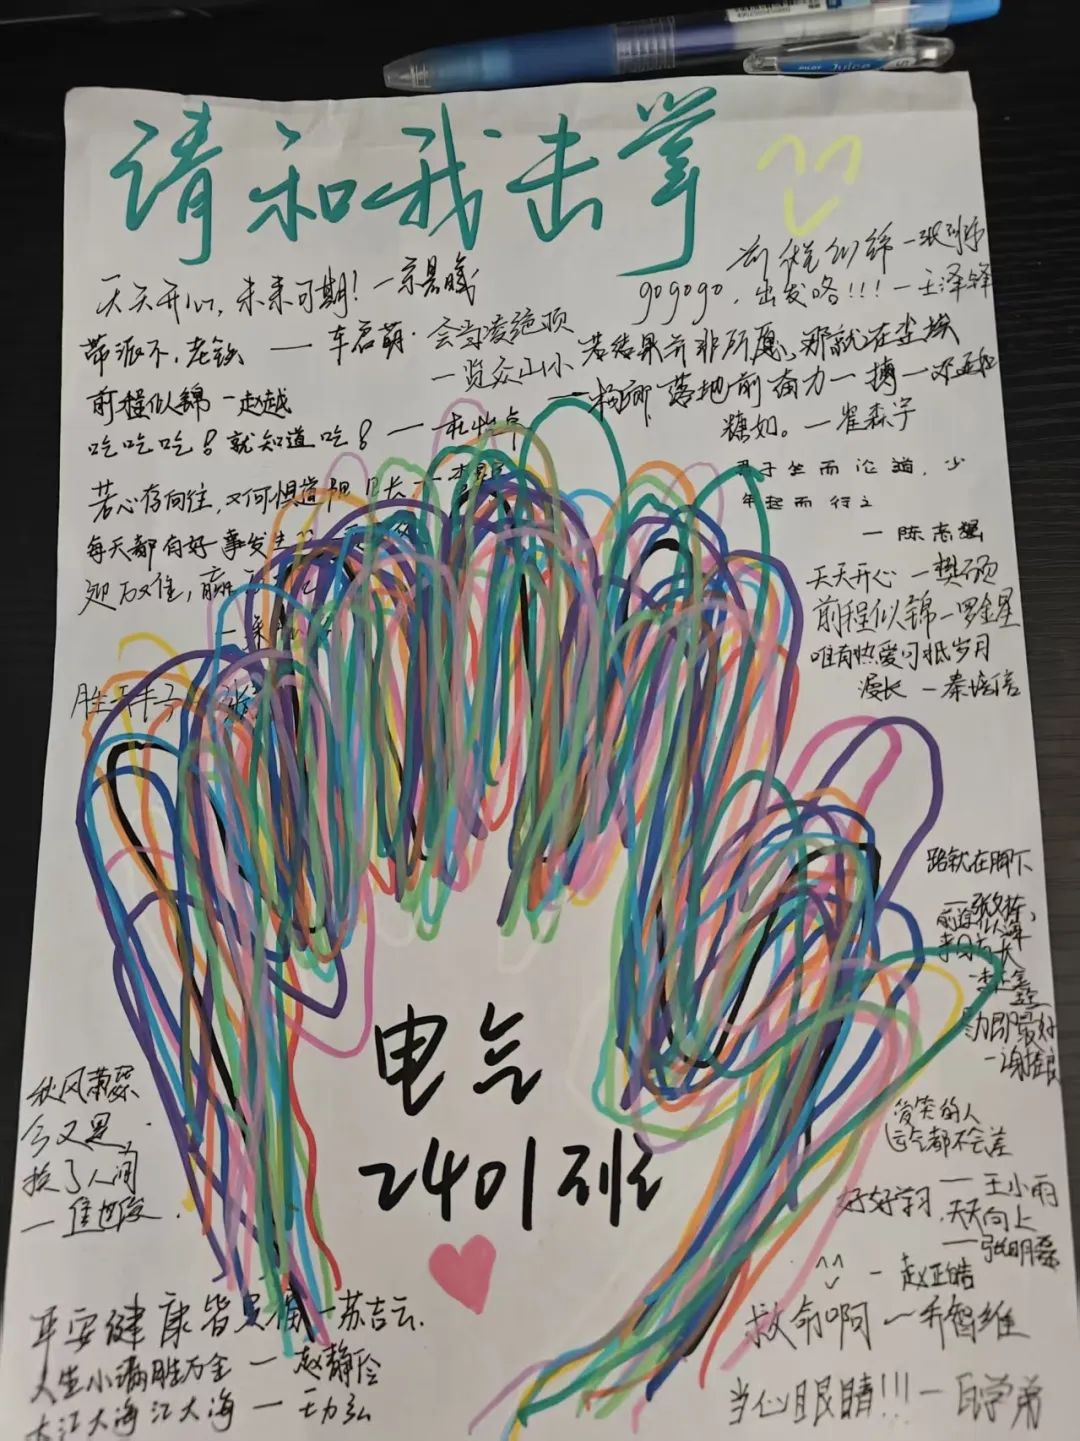 PILOT Juice
请和我击掌
天天开心,未来可期!
前程似锦
gogogo,出发咯!!!—王泽锋
带派不,老铁 — 车启萌·会当凌绝顶
一览众山小
若结果并非所愿,那就在尘埃
落地前奋力一搏
前程似锦 — 赵越
糖如。—崔森宇
吃吃吃!就知道吃!
君子坐而论道,少
年起而行之
— 陈志强
若心存向往,又何惧道阻且长
每天都有好事发生
迎万难,赢
天天开心 — 樊硕
前程似锦 — 罗金星
唯有热爱可抵岁月
漫长 — 秦培信
胜天半子
路就在脚下
前途似海,
来日方长
秋风萧瑟
今又是,
换了人间
爱笑的人
运气都不会差
— 王小雨
好好学习,
天天向上
— 张明磊
— 赵亚皓
电气
2401班
平安健康皆是福 — 苏吉云.
人生小满胜万全 — 赵静怡
大江大海江大海 — 王力弘
救命啊 — 乔智维
当心眼睛!!! — 白学弟